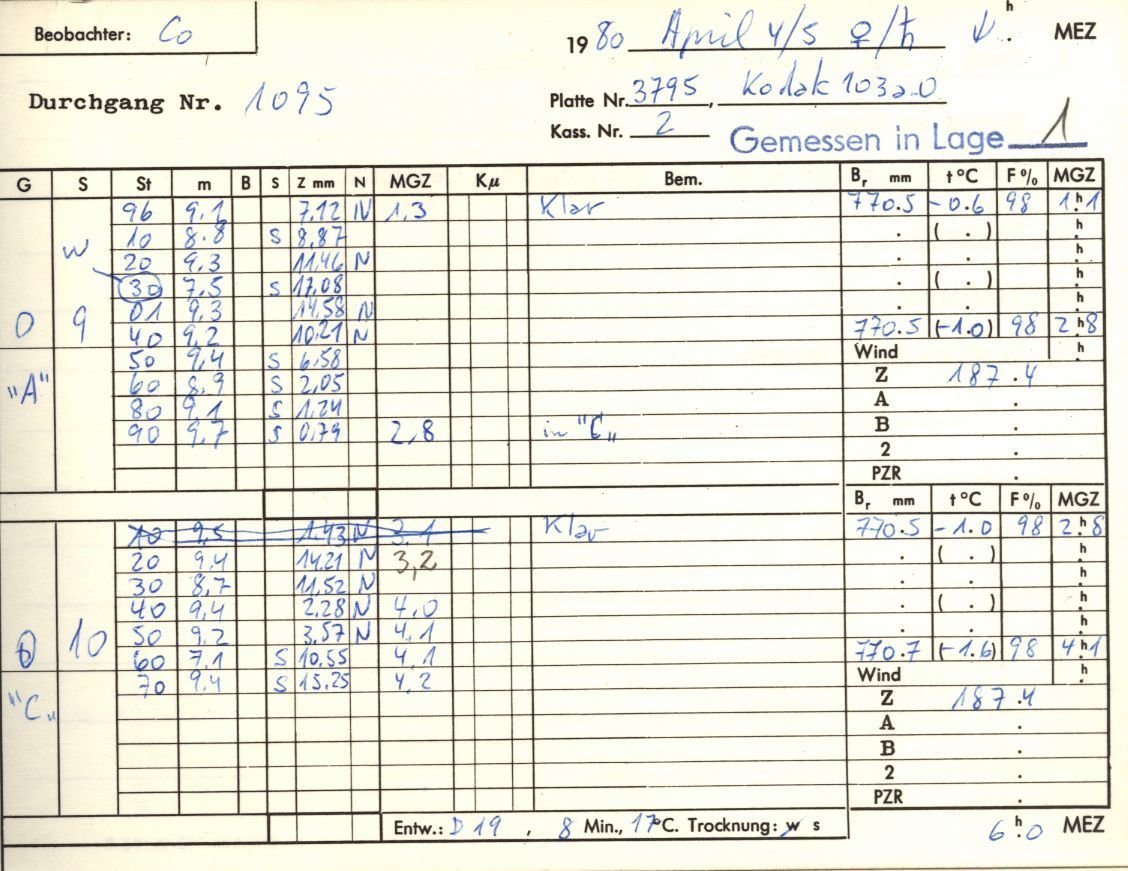 Beobachter: Co
19 80 April 4/5 ♀/♄ h MEZ
Durchgang Nr. 1095
Platte Nr. 3795, Kodak 103a-O
Kass. Nr. 2
Gemessen in Lage 1
G S St m B S Z mm N MGZ Kμ Bem. Br mm t °C F % MGZ
96 9,1 7,12 N 1,3 Klar 770.5 -0.6 98 1h1
W 10 8.8 S 8,87 . ( . ) h
20 9,3 11,46 N . h
30 7,5 S 17,08 . ( . ) h
01 9,3 14,58 N . h
O 9 40 9,2 10,21 N 770.5 (-1.0) 98 2h8
50 9,4 S 6,58 Wind h
"A" 60 8,9 S 2,05 Z 187.4
80 9,1 S 1,24 A .
90 9,7 S 0,79 2,8 in "C" B .
2 .
PZR .
Br mm t °C F % MGZ
10 9,5 1,43 N 3,1 Klar 770.5 -1.0 98 2h8
20 9,4 14,21 N 3,2 . ( . ) h
30 8,7 11,52 N . h
40 9,4 2,28 N 4,0 . ( . ) h
10 50 9,2 3,57 N 4,1 . h
60 7,1 S 10,55 4,1 770.7 (-1.6) 98 4h1
70 9,4 S 15,25 4,2 Wind h
"C" Z 187.4
A .
B .
2 .
PZR .
Entw.: D 19, 8 Min., 17°C. Trocknung: w s 6h0 MEZ